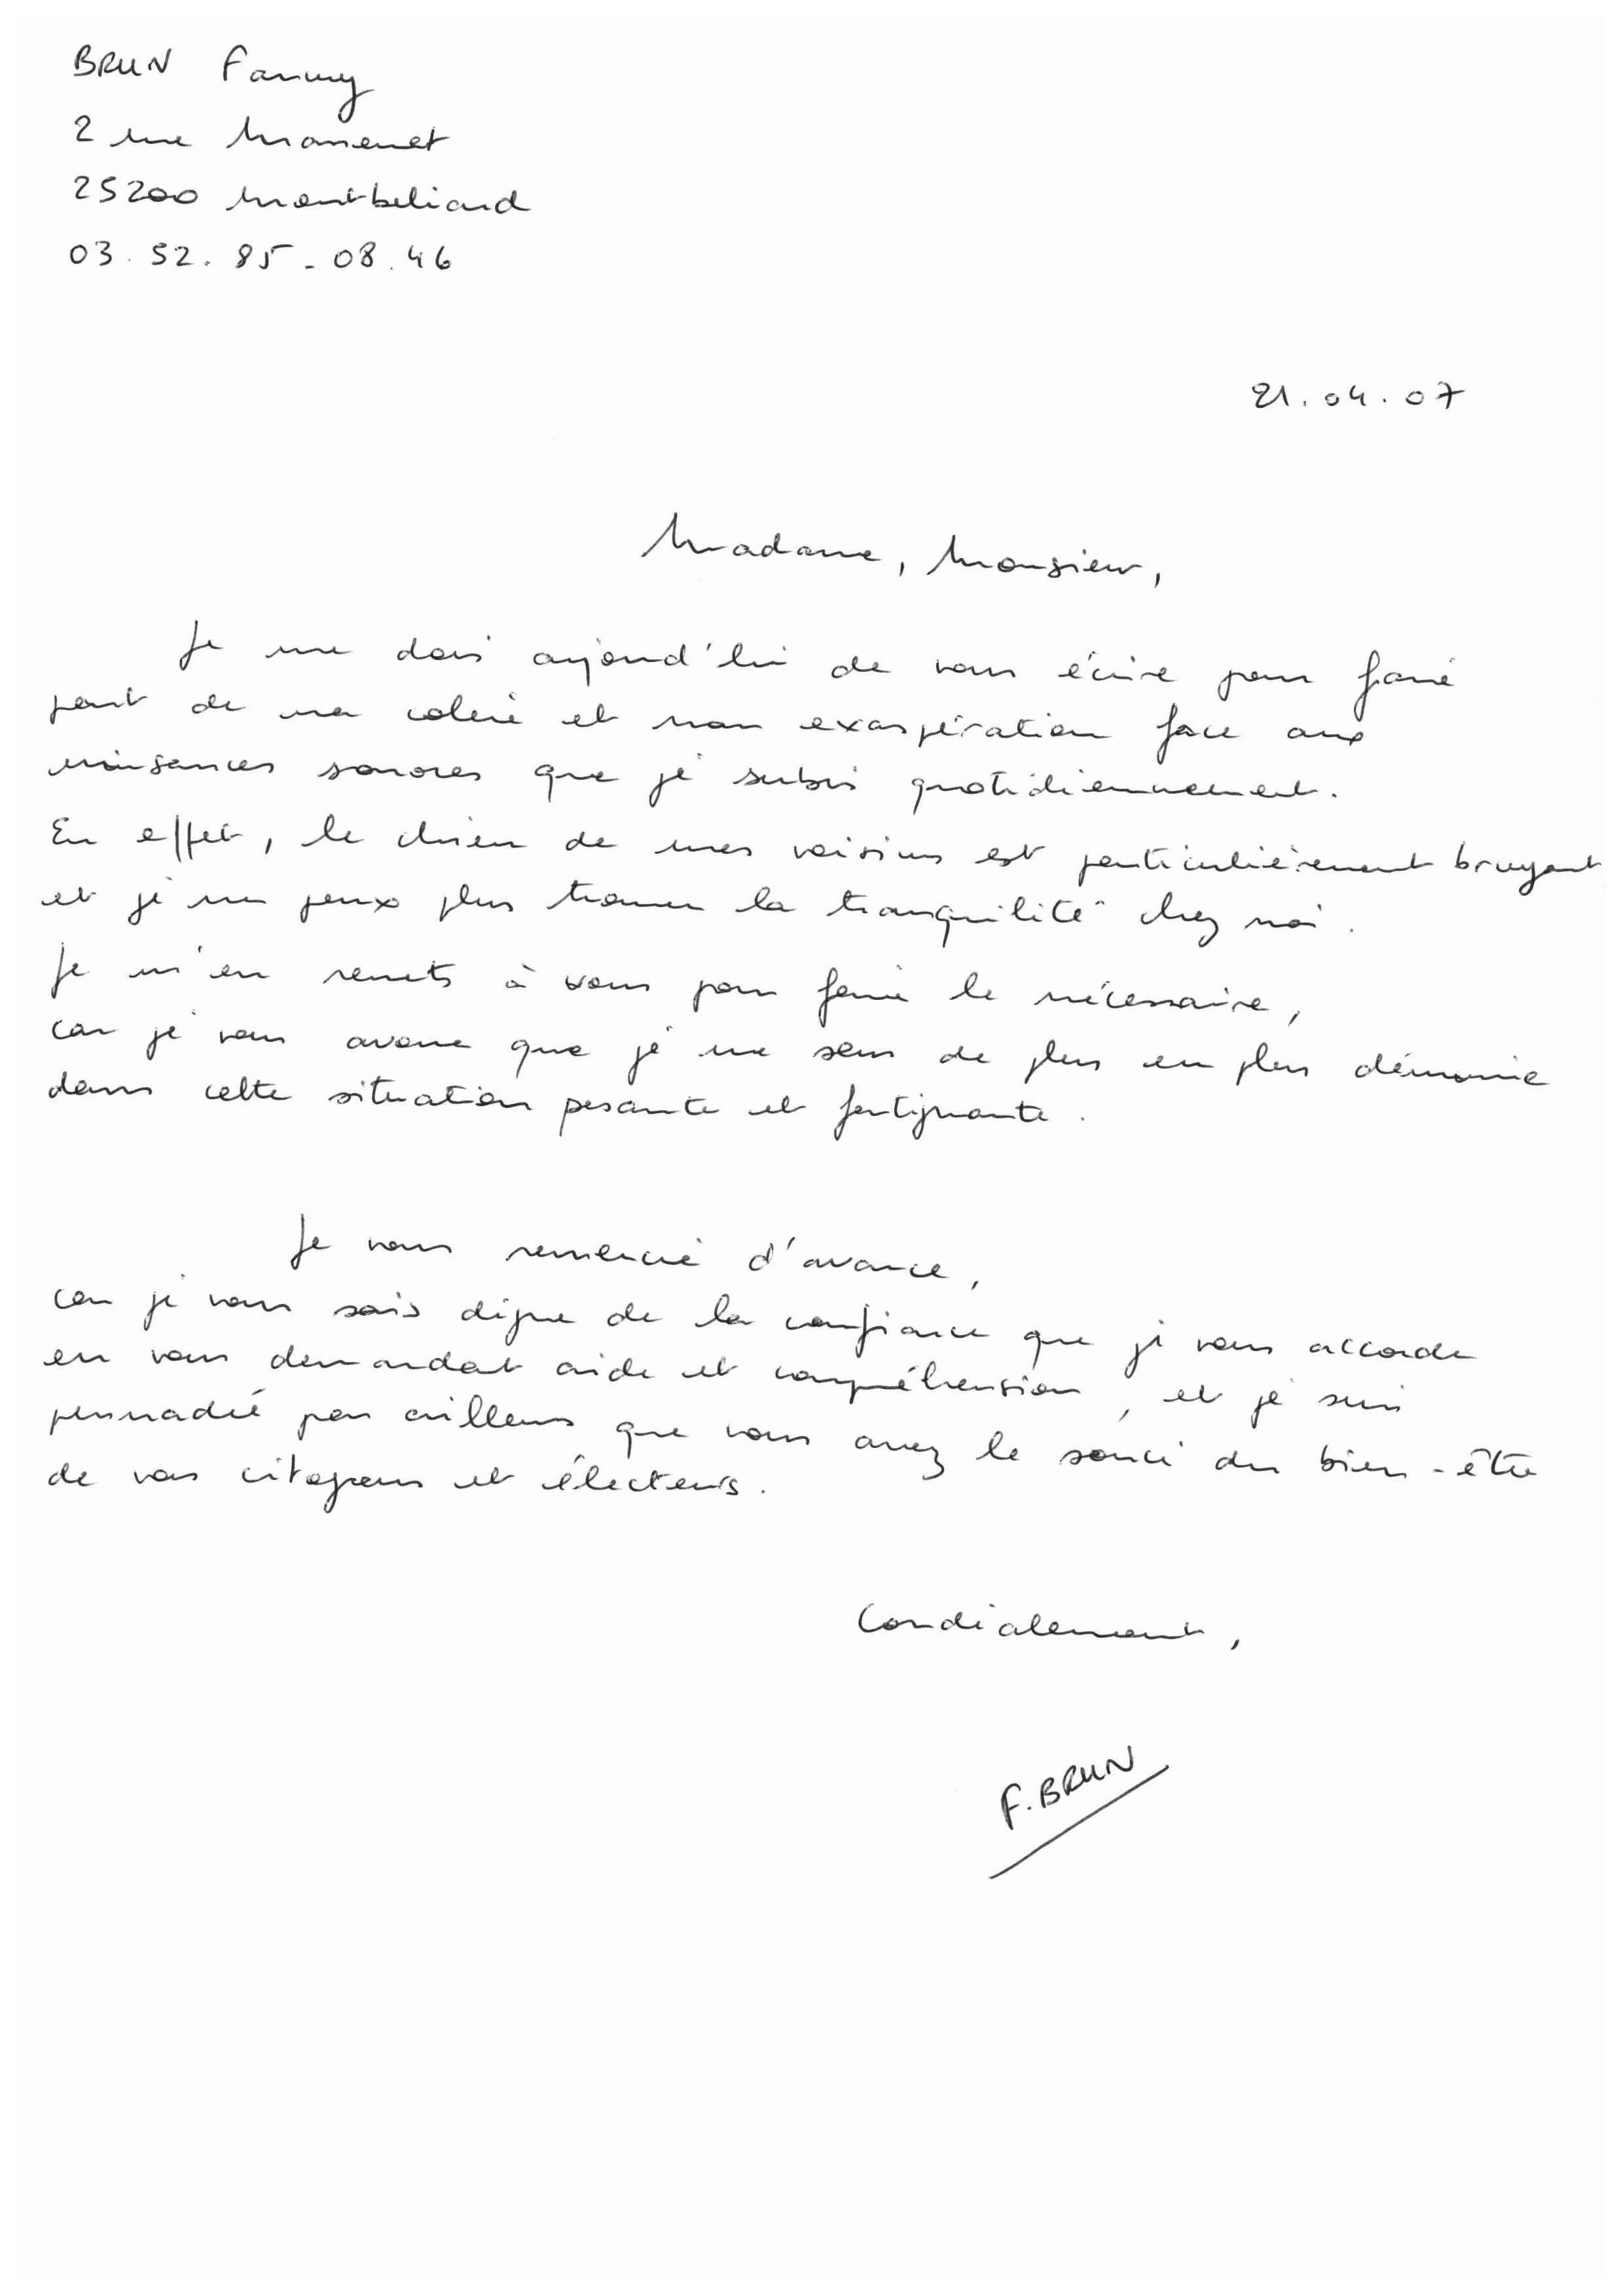 BRUN Fanny
2 rue Massenet
25200 Montbeliard
03.52.85-08.46
21.04.07
Madame, Monsieur,
Je me dois aujourd'hui de vous écrire pour faire
part de ma colère et mon exaspération face aux
nuisances sonores que je subis quotidiennement.
En effet, le chien de mes voisins est particulièrement bruyant
et je ne peux plus trouver la tranquilité chez moi.
Je m'en remets à vous pour faire le nécessaire,
car je vous avoue que je me sens de plus en plus démunie
dans cette situation pesante et fatiguante.
Je vous remercie d'avance,
car je vous sais digne de la confiance que je vous accorde
en vous demandat aide et compréhension, et je suis
persuadée par ailleurs que vous avez le souci du bien-être
de vos citoyens et électeurs.
Cordialement,
F. BRUN